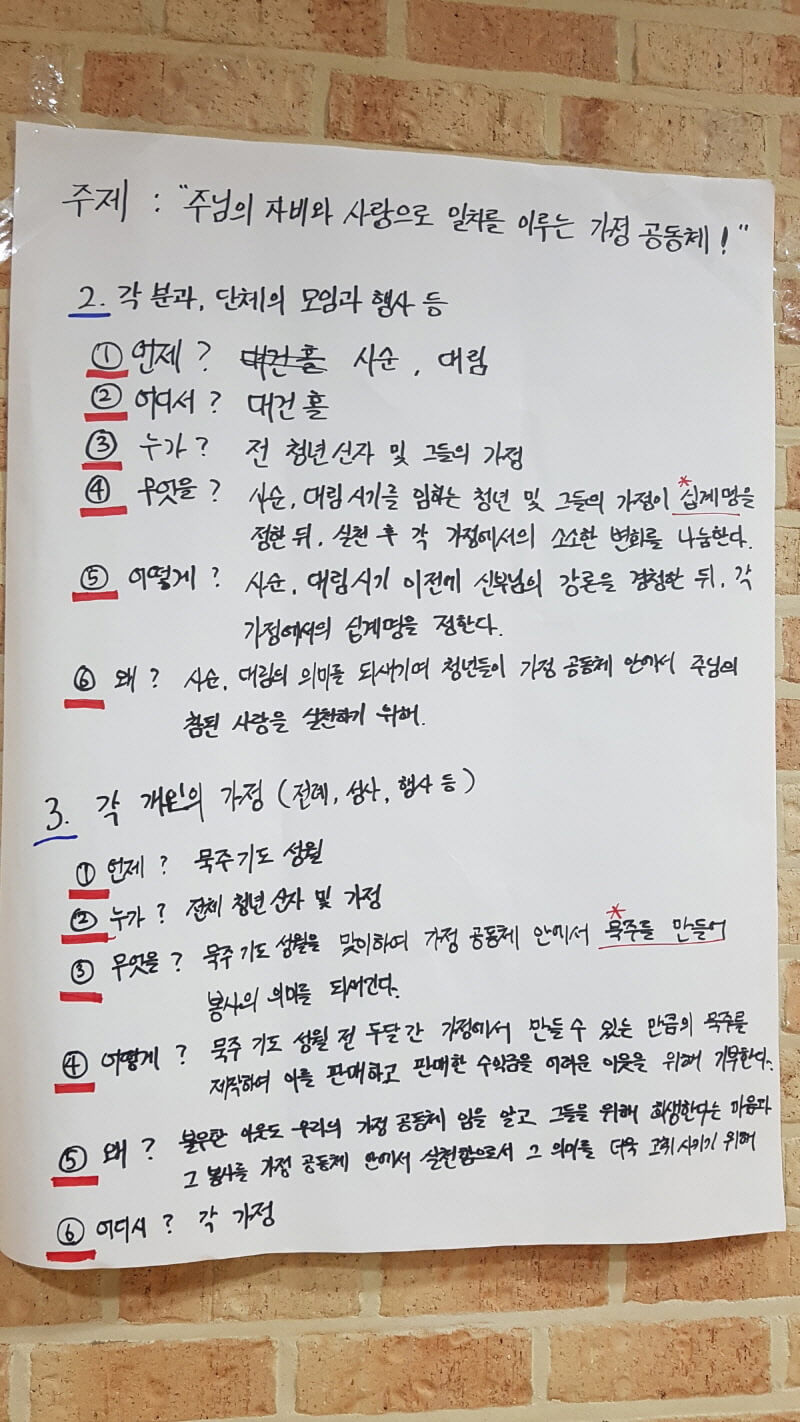 주제 : "주님의 자비와 사랑으로 일치를 이루는 가정 공동체!"
2. 각 분과, 단체의 모임과 행사 등
① 언제? 대건홀 사순, 대림
② 어디서? 대건홀
③ 누가? 전 청년신자 및 그들의 가정
④ 무엇을? 사순, 대림시기를 임하는 청년 및 그들의 가정이 *십계명을
정한 뒤, 실천 후 각 가정에서의 소소한 변화를 나눔한다.
⑤ 어떻게? 사순, 대림시기 이전에 신부님의 강론을 경청한 뒤, 각
가정에서의 십계명을 정한다.
⑥ 왜? 사순, 대림의 의미를 되새기며 청년들이 가정 공동체 안에서 주님의
참된 사랑을 실천하기 위해.
3. 각 개인의 가정 (전례, 성사, 행사 등)
① 언제? 묵주기도 성월
② 누가? 전체 청년 신자 및 가정
③ 무엇을? 묵주 기도 성월을 맞이하여 가정 공동체 안에서 *묵주를 만들어
봉사의 의미를 되새긴다.
④ 어떻게? 묵주 기도 성월 전 두달간 가정에서 만들 수 있는 만큼의 묵주를
제작하여 이를 판매하고 판매한 수익금을 어려운 이웃을 위해 기부한다.
⑤ 왜? 불우한 이웃도 우리의 가정 공동체 임을 알고 그들을 위해 희생한다는 마음과
그 봉사를 가정 공동체 안에서 실천함으로서 그 의미를 더욱 고취 시키기 위해
⑥ 어디서? 각 가정